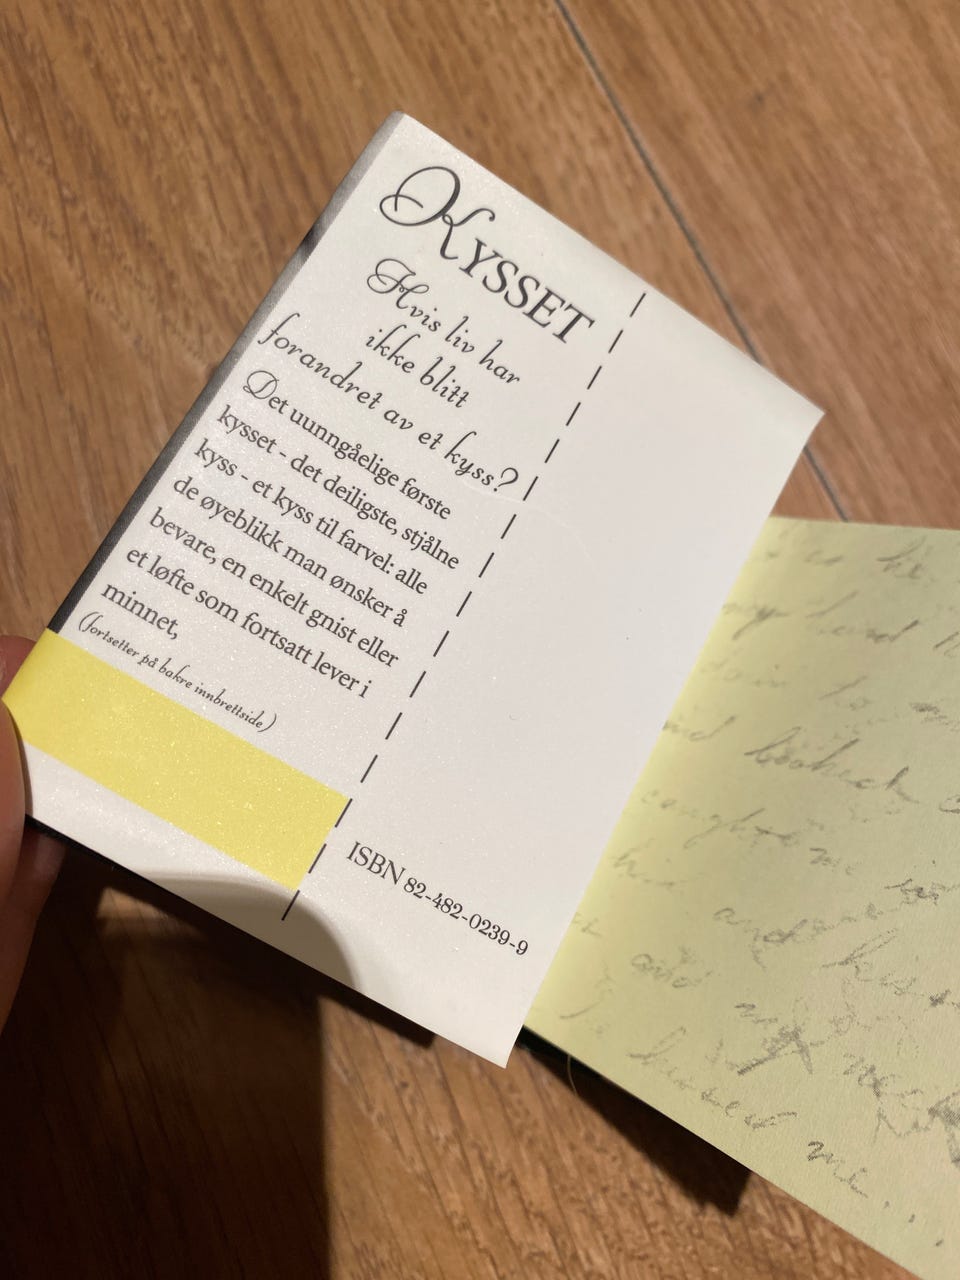 KYSSET
Hvis liv har
ikke blitt
forandret av et kyss?
Det uunngåelige første
kysset - det deiligste, stjålne
kyss - et kyss til farvel: alle
de øyeblikk man ønsker å
bevare, en enkelt gnist eller
et løfte som fortsatt lever i
minnet,
(fortsetter på bakre innbrettside)
ISBN 82-482-0239-9
hand
looked
me
and
and my
kissed me...